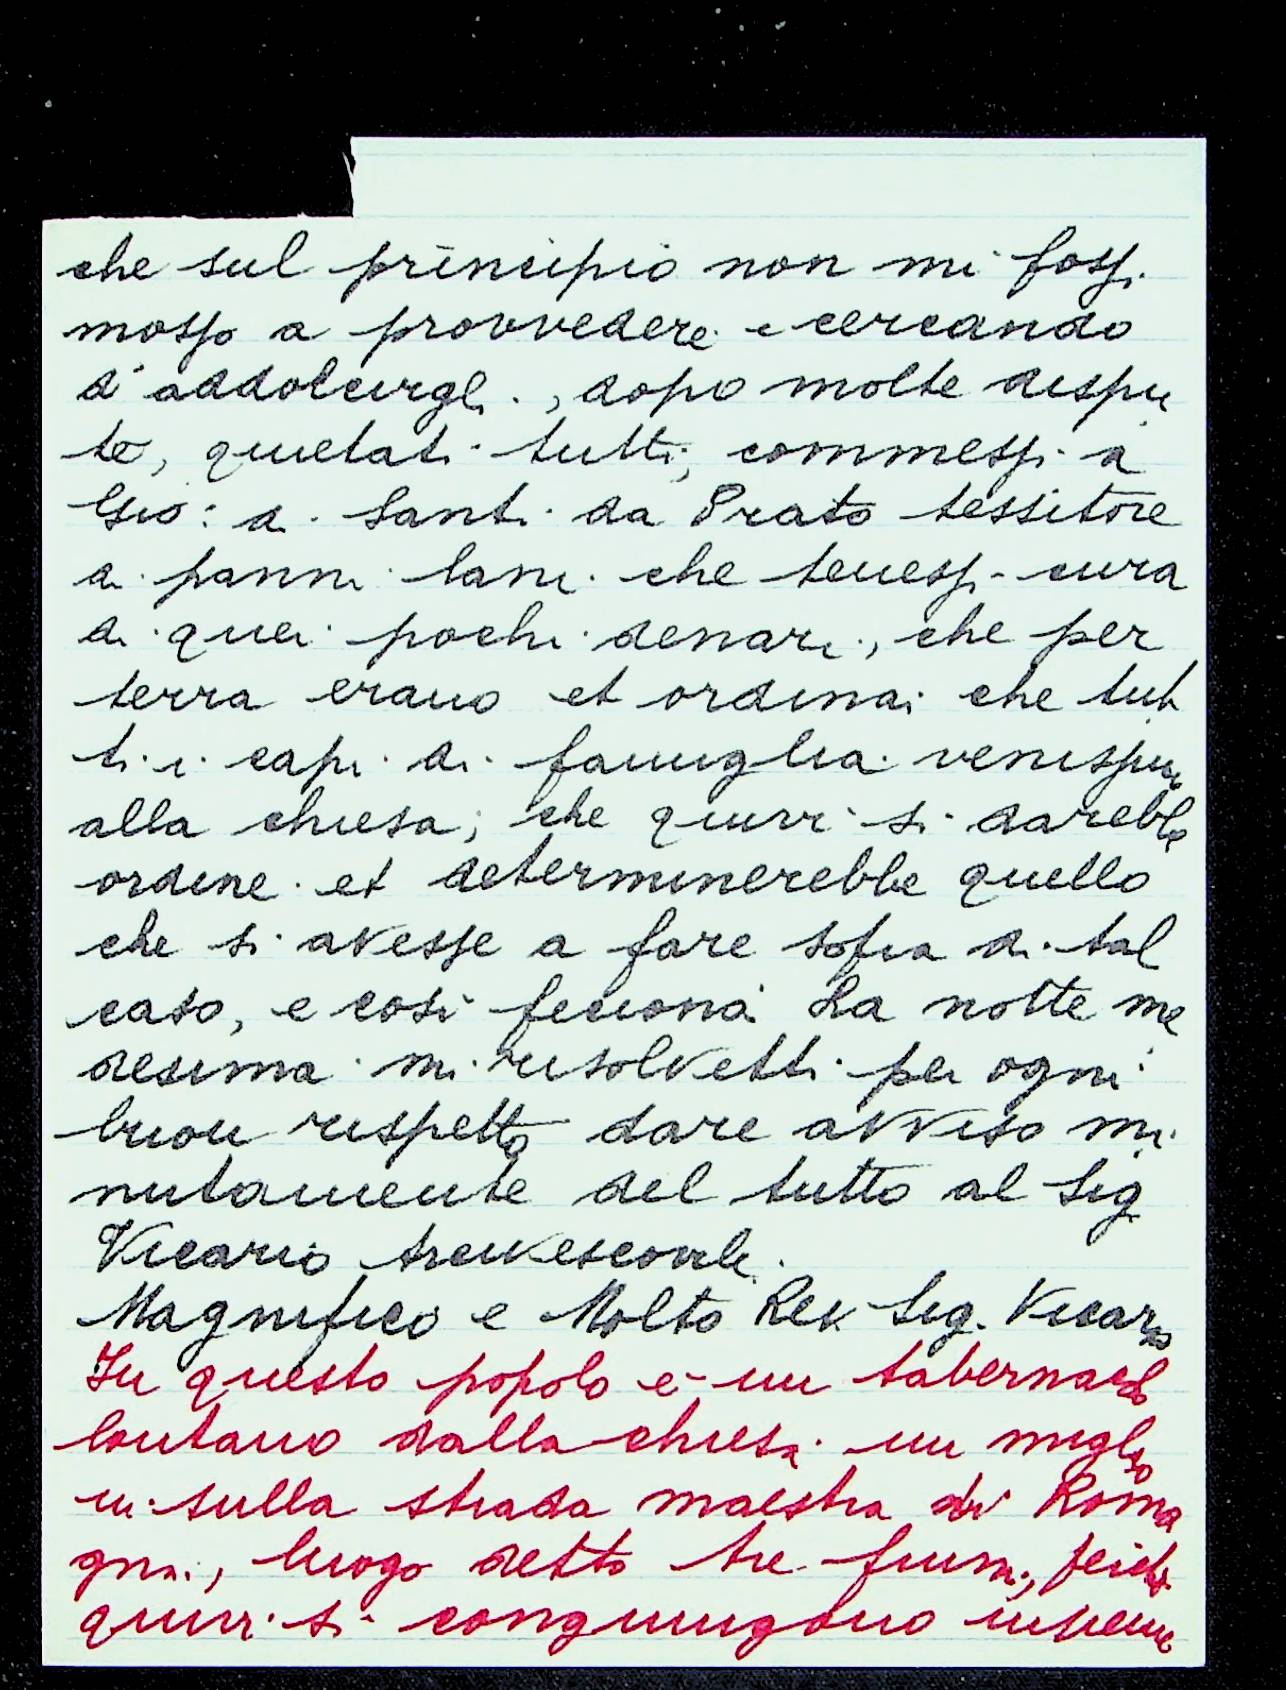 che sul principio non mi fossi
mosso a provvedere e cercando
d'addolcirgli, dopo molte dispu
te, quietati tutti, commessi a
Gio: di Santi da Prato tessitore
di panni lani che tenessi cura
di quei pochi denari, che per
terra erano et ordinai che tut
ti i capi di famiglia venissino
alla chiesa; che quivi si darebbe
ordine et determinerebbe quello
che si avesse a fare sopra di tal
caso, e così feciono. La notte me
desima mi risolvetti per ogni
buon rispetto dare avviso mi
nutamente del tutto al Sig
Vicario Arcivescovile.
Magnifico e Molto Rev Sig. Vicario
In questo popolo e un tabernacolo
lontano dalla chiesa un miglio
in sulla strada maestra di Roma
gna, luogo detto tre fiumi, perchè
quivi si congiungono insieme